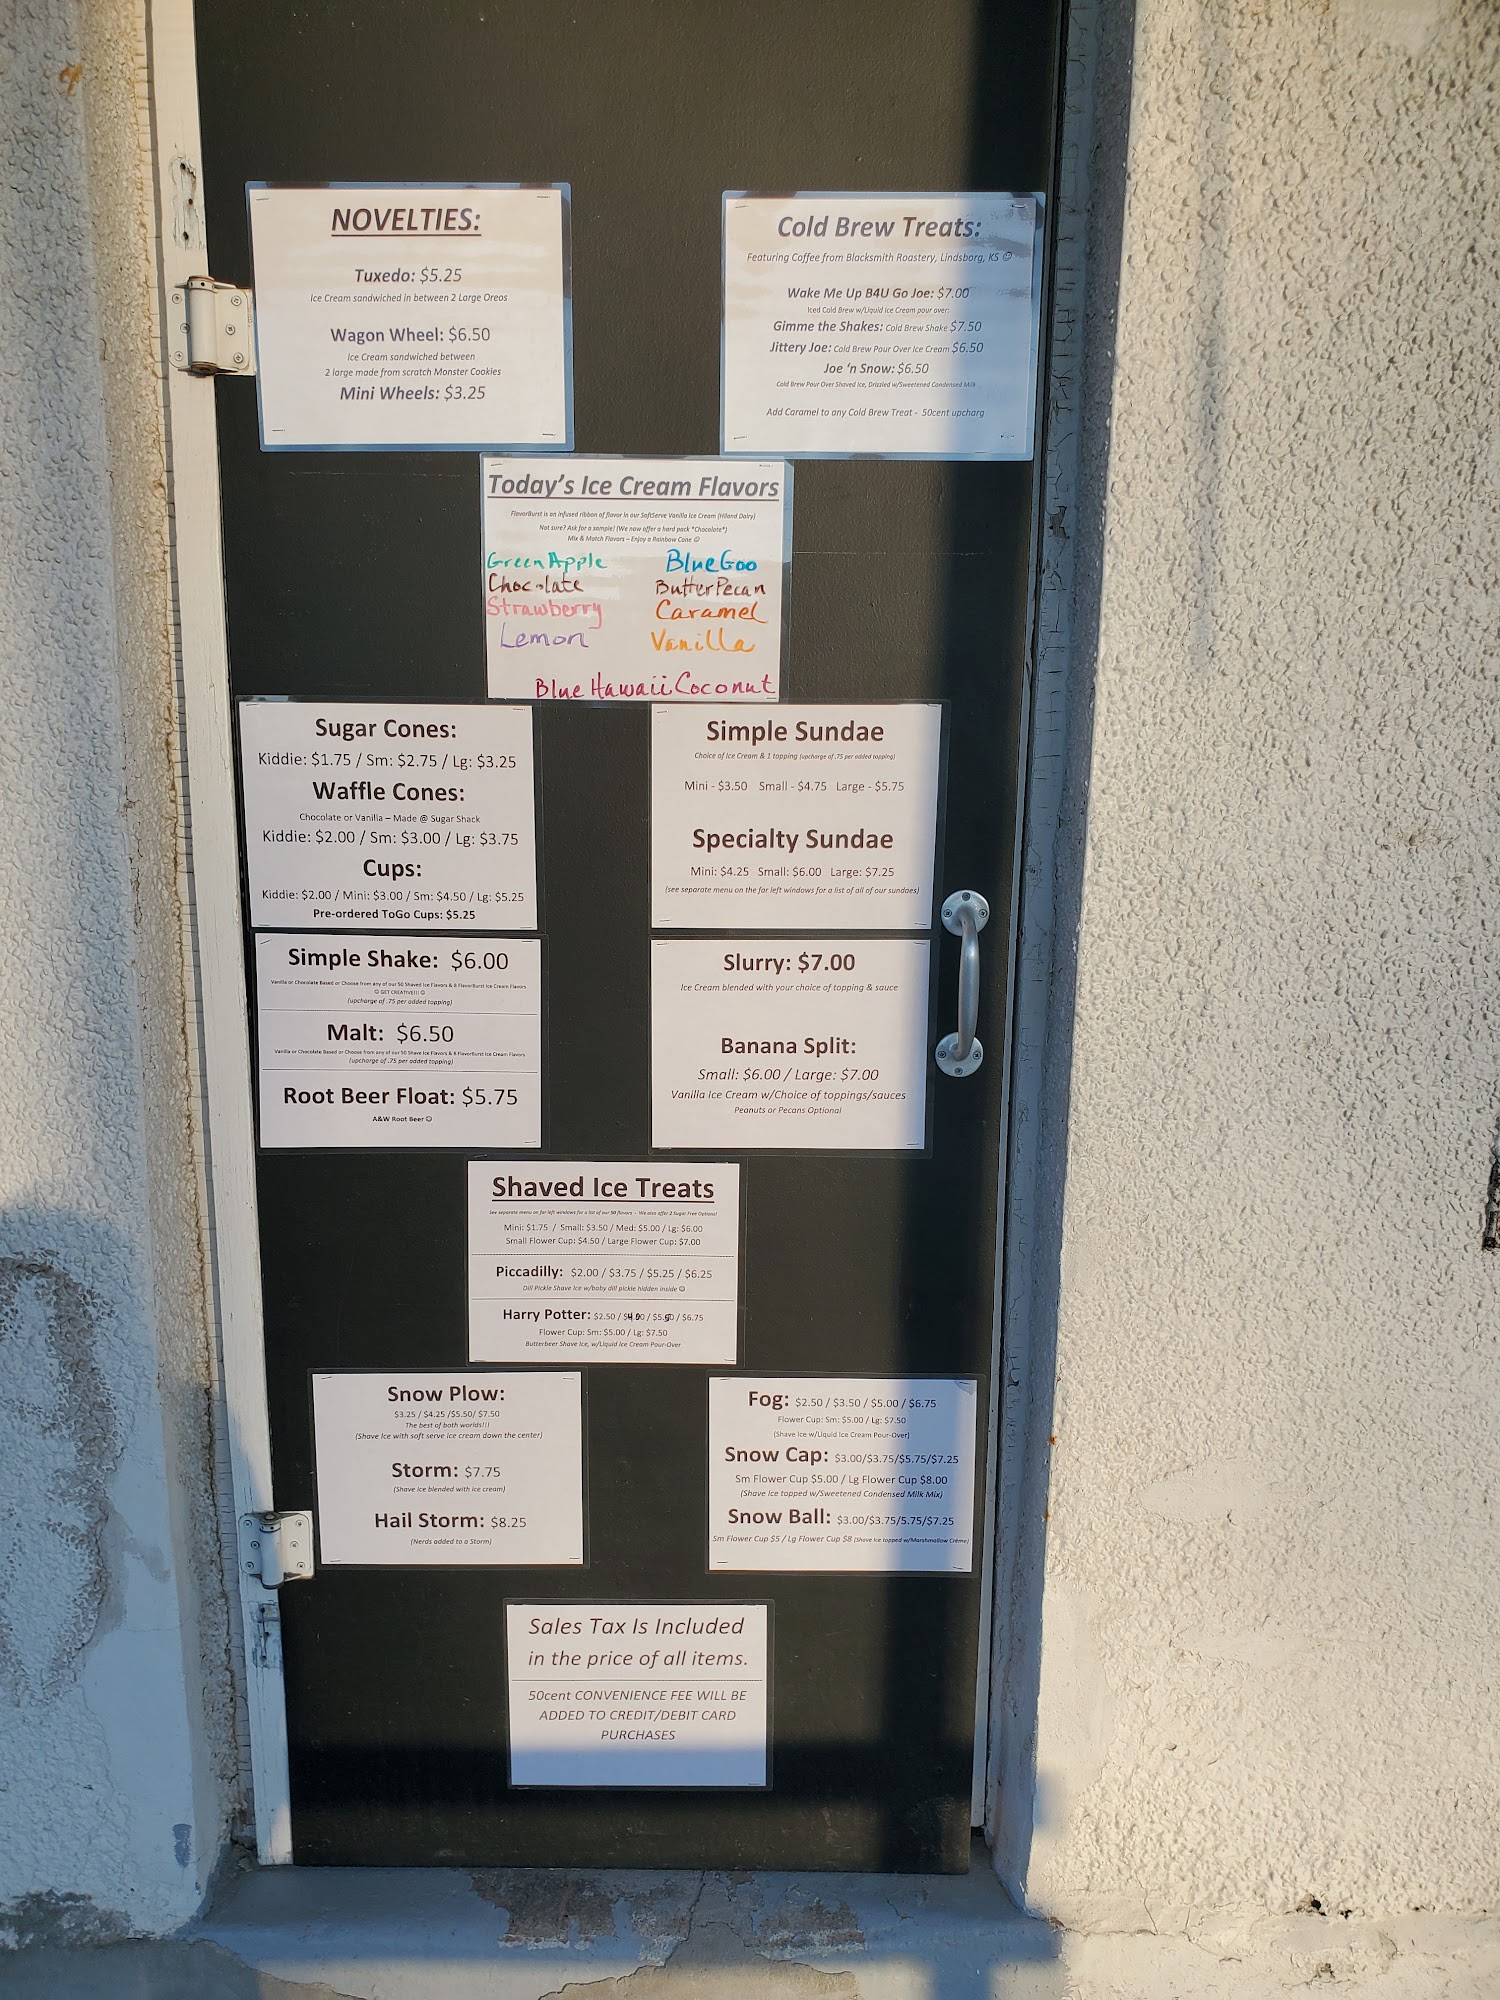 NOVELTIES:
Tuxedo: $5.25
Ice Cream sandwiched in between 2 Large Oreos
Wagon Wheel: $6.50
Ice Cream sandwiched between
2 large made from scratch Monster Cookies
Mini Wheels: $3.25
Cold Brew Treats:
Featuring Coffee from Blacksmith Roastery, Lindsborg, KS ☺
Wake Me Up B4U Go Joe: $7.00
Iced Cold Brew w/Liquid Ice Cream pour over:
Gimme the Shakes: Cold Brew Shake $7.50
Jittery Joe: Cold Brew Pour Over Ice Cream $6.50
Joe 'n Snow: $6.50
Cold Brew Pour Over Shaved Ice, Drizzled w/Sweetened Condensed Milk
Add Caramel to any Cold Brew Treat - 50cent upcharg
Today's Ice Cream Flavors
FlavorBurst is an infused ribbon of flavor in our SoftServe Vanilla Ice Cream (Hiland Dairy)
Not sure? Ask for a sample! (We now offer a hard pack *Chocolate*)
Mix & Match Flavors – Enjoy a Rainbow Cone ☺
Green Apple
Blue Goo
Chocolate
Butter Pecan
Strawberry
Caramel
Lemon
Vanilla
Blue Hawaii Coconut
Sugar Cones:
Kiddie: $1.75 / Sm: $2.75 / Lg: $3.25
Waffle Cones:
Chocolate or Vanilla – Made @ Sugar Shack
Kiddie: $2.00 / Sm: $3.00 / Lg: $3.75
Cups:
Kiddie: $2.00 / Mini: $3.00 / Sm: $4.50 / Lg: $5.25
Pre-ordered ToGo Cups: $5.25
Simple Sundae
Choice of Ice Cream & 1 topping (upcharge of .75 per added topping)
Mini - $3.50 Small - $4.75 Large - $5.75
Specialty Sundae
Mini: $4.25 Small: $6.00 Large: $7.25
(see separate menu on the far left windows for a list of all of our sundaes)
Simple Shake: $6.00
Vanilla or Chocolate Based or Choose from any of our 50 Shaved Ice Flavors & 8 FlavorBurst Ice Cream Flavors
☺ GET CREATIVE!!! ☺
(upcharge of .75 per added topping)
Malt: $6.50
Vanilla or Chocolate Based or Choose from any of our 50 Shave Ice Flavors & 8 FlavorBurst Ice Cream Flavors
(upcharge of .75 per added topping)
Root Beer Float: $5.75
A&W Root Beer ☺
Slurry: $7.00
Ice Cream blended with your choice of topping & sauce
Banana Split:
Small: $6.00 / Large: $7.00
Vanilla Ice Cream w/Choice of toppings/sauces
Peanuts or Pecans Optional
Shaved Ice Treats
See separate menu on far left windows for a list of our 50 flavors - We also offer 2 Sugar Free Options!
Mini: $1.75 / Small: $3.50 / Med: $5.00 / Lg: $6.00
Small Flower Cup: $4.50 / Large Flower Cup: $7.00
Piccadilly: $2.00 / $3.75 / $5.25 / $6.25
Dill Pickle Shave Ice w/baby dill pickle hidden inside ☺
Harry Potter: $2.50 / $4.00 / $5.50 / $6.75
Flower Cup: Sm: $5.00 / Lg: $7.50
Butterbeer Shave Ice, w/Liquid Ice Cream Pour-Over
Snow Plow:
$3.25 / $4.25 /$5.50/ $7.50
The best of both worlds!!!
(Shave Ice with soft serve ice cream down the center)
Storm: $7.75
(Shave Ice blended with ice cream)
Hail Storm: $8.25
(Nerds added to a Storm)
Fog: $2.50 / $3.50 / $5.00 / $6.75
Flower Cup: Sm: $5.00 / Lg: $7.50
(Shave Ice w/Liquid Ice Cream Pour-Over)
Snow Cap: $3.00/$3.75/$5.75/$7.25
Sm Flower Cup $5.00 / Lg Flower Cup $8.00
(Shave Ice topped w/Sweetened Condensed Milk Mix)
Snow Ball: $3.00/$3.75/5.75/$7.25
Sm Flower Cup $5 / Lg Flower Cup $8 (Shave Ice topped w/Marshmallow Crème)
Sales Tax Is Included
in the price of all items.
50cent CONVENIENCE FEE WILL BE
ADDED TO CREDIT/DEBIT CARD
PURCHASES